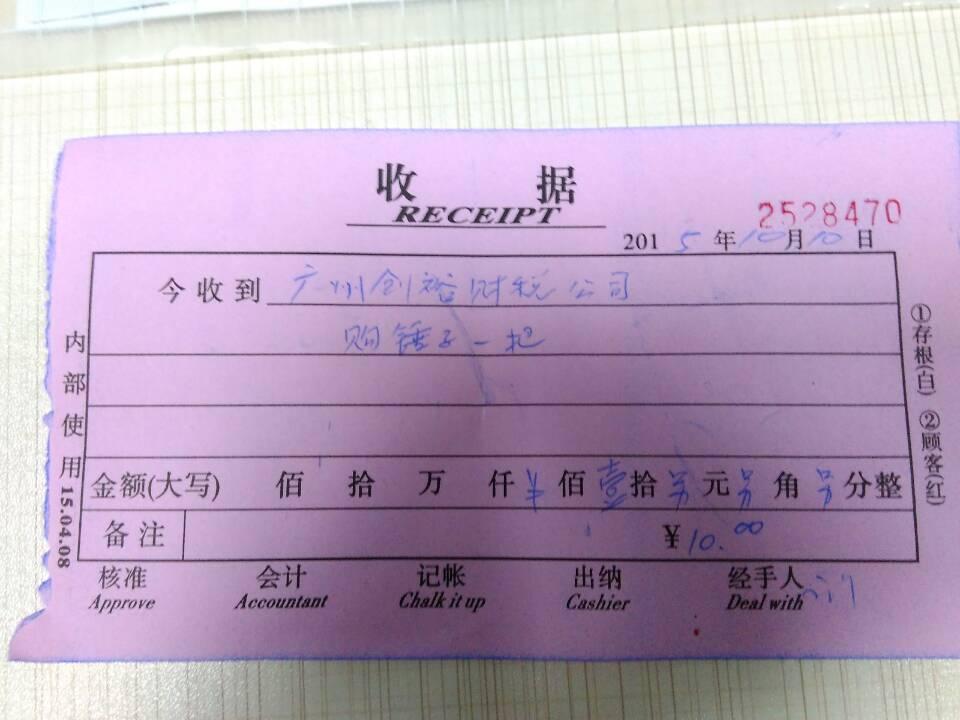 收 据
RECEIPT
2528470
2015年10月10日
今收到 广州创裕财税公司
购锤子一把
金额(大写) 佰 拾 万 仟 ¥ 佰 壹 拾 另 元 另 角 另 分整
备注 ¥10.00
核准 会计 记帐 出纳 经手人
Approve Accountant Chalk it up Cashier Deal with
内部使用 15.04.08
①存根(白) ②顾客(红)